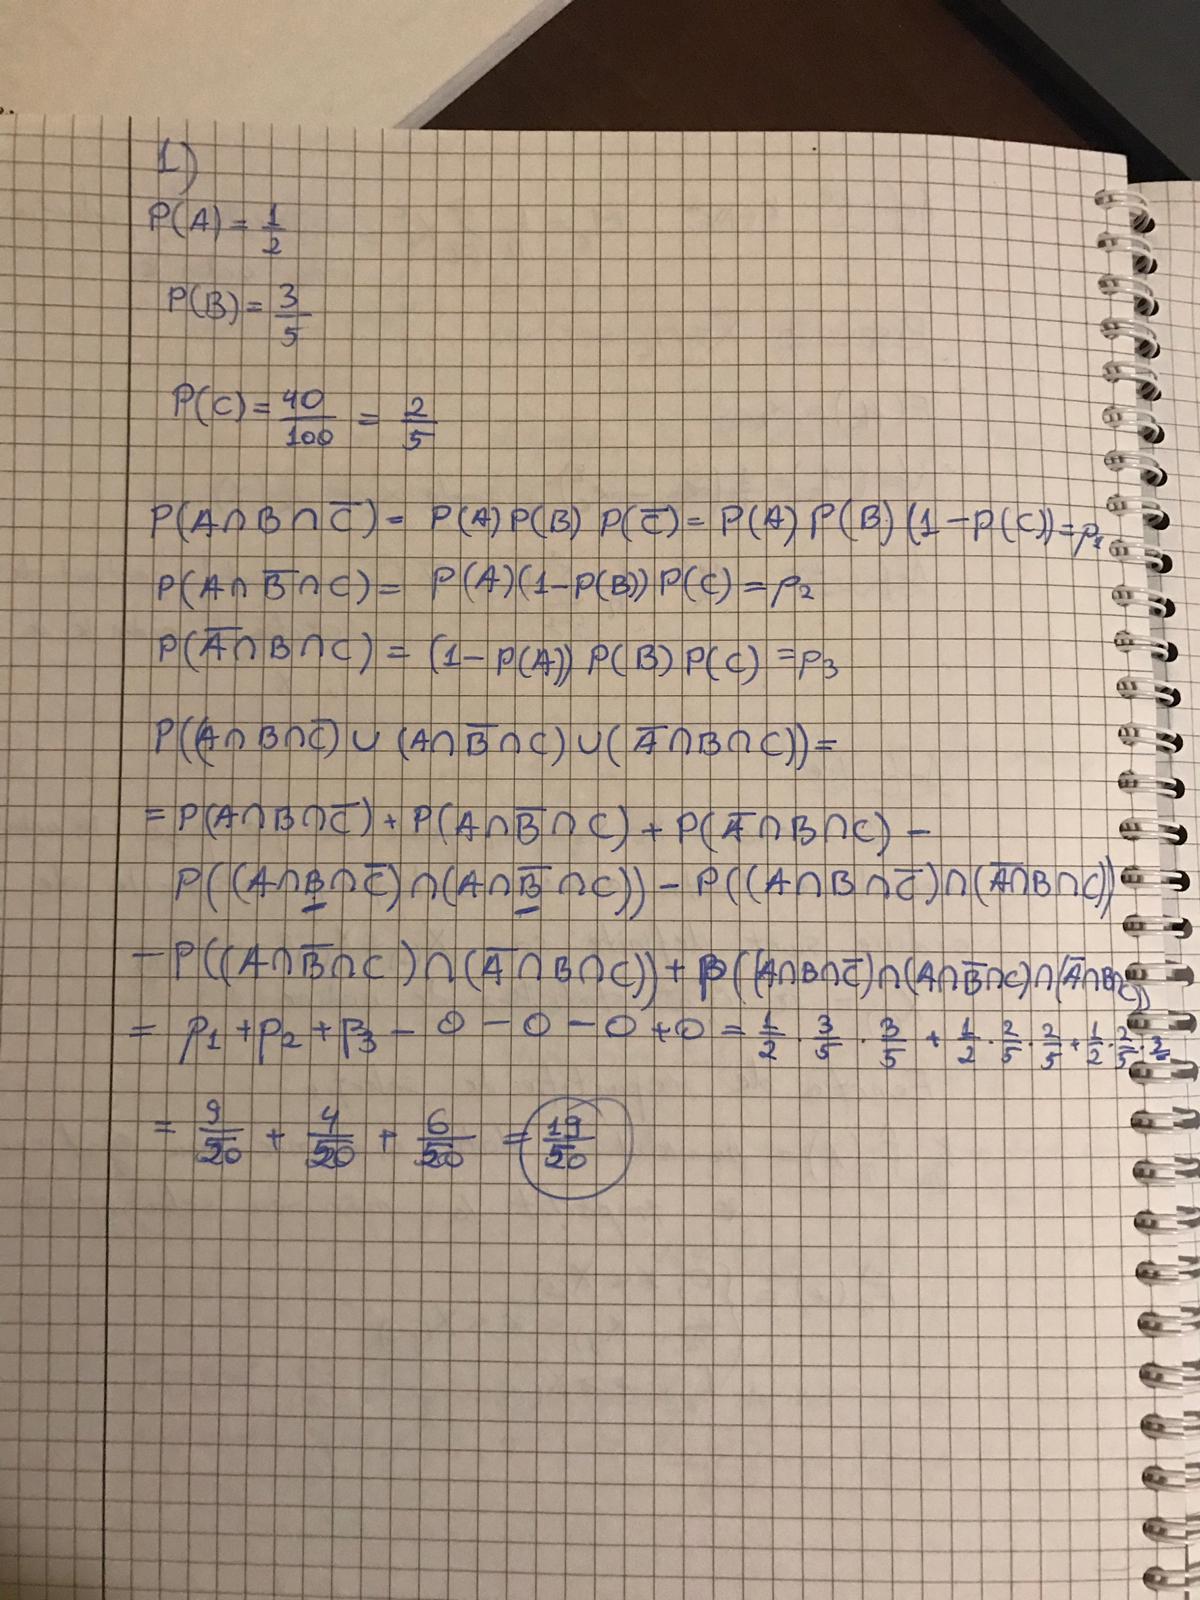 1)
P(A) = 1/2
P(B) = 3/5
P(C) = 40/100 = 2/5
P(A∩B∩C̅) = P(A) P(B) P(C̅) = P(A) P(B) (1-P(C)) = p₁
P(A∩B̅∩C) = P(A)(1-P(B)) P(C) = p₂
P(A̅∩B∩C) = (1-P(A)) P(B) P(C) = p₃
P((A∩B∩C̅) ∪ (A∩B̅∩C) ∪ (A̅∩B∩C)) =
= P(A∩B∩C̅) + P(A∩B̅∩C) + P(A̅∩B∩C) -
P((A∩B∩C̅)∩(A∩B̅∩C)) - P((A∩B∩C̅)∩(A̅∩B∩C))
- P((A∩B̅∩C)∩(A̅∩B∩C)) + P((A∩B∩C̅)∩(A∩B̅∩C)∩(A̅∩B∩C))
= p₁ + p₂ + p₃ - 0 - 0 - 0 + 0 = 1/2 · 3/5 · 3/5 + 1/2 · 2/5 · 2/5 + 1/2 · 2/5 · 3/5
= 9/50 + 4/50 + 6/50 = 19/50